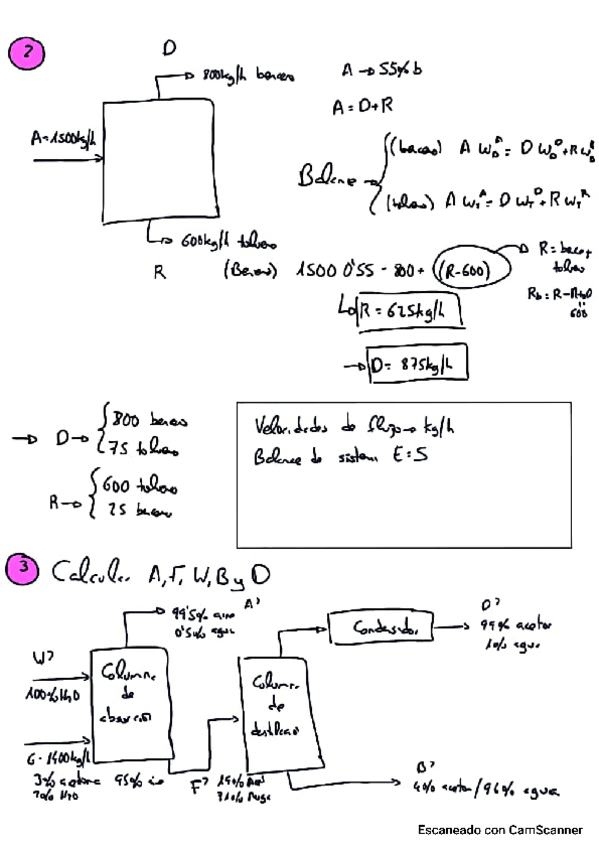 2
D
800kg/h benceno
A → 55% b
A = D+R
A=1500kg/h
Balance →
(benceno) A W_b^A = D W_b^D + R W_b^R
(tolueno) A W_T^A = D W_T^D + R W_T^R
600kg/h tolueno
R
(Benceno) 1500 0'55 - 800+ (R-600)
R = benc+
tolueno
600
R = 625kg/h
→ D= 875kg/h
→ D → 800 benceno
75 tolueno
R → 600 tolueno
25 benceno
Velocidades de flujo → kg/h
Balance de sistema E=S
3 Calcular A, F, W, B y D
A?
99'5% aire
0'5% agua
W?
100% H2O
Columna
de
absorción
G = 1400kg/h
3% acetona 95% aire
2% H2O
F? 19% Acet
81% Agua
Columna
de
destilación
Condensador
D?
99% aceton
1% agua
B?
4% aceton / 96% agua
Escaneado con CamScanner